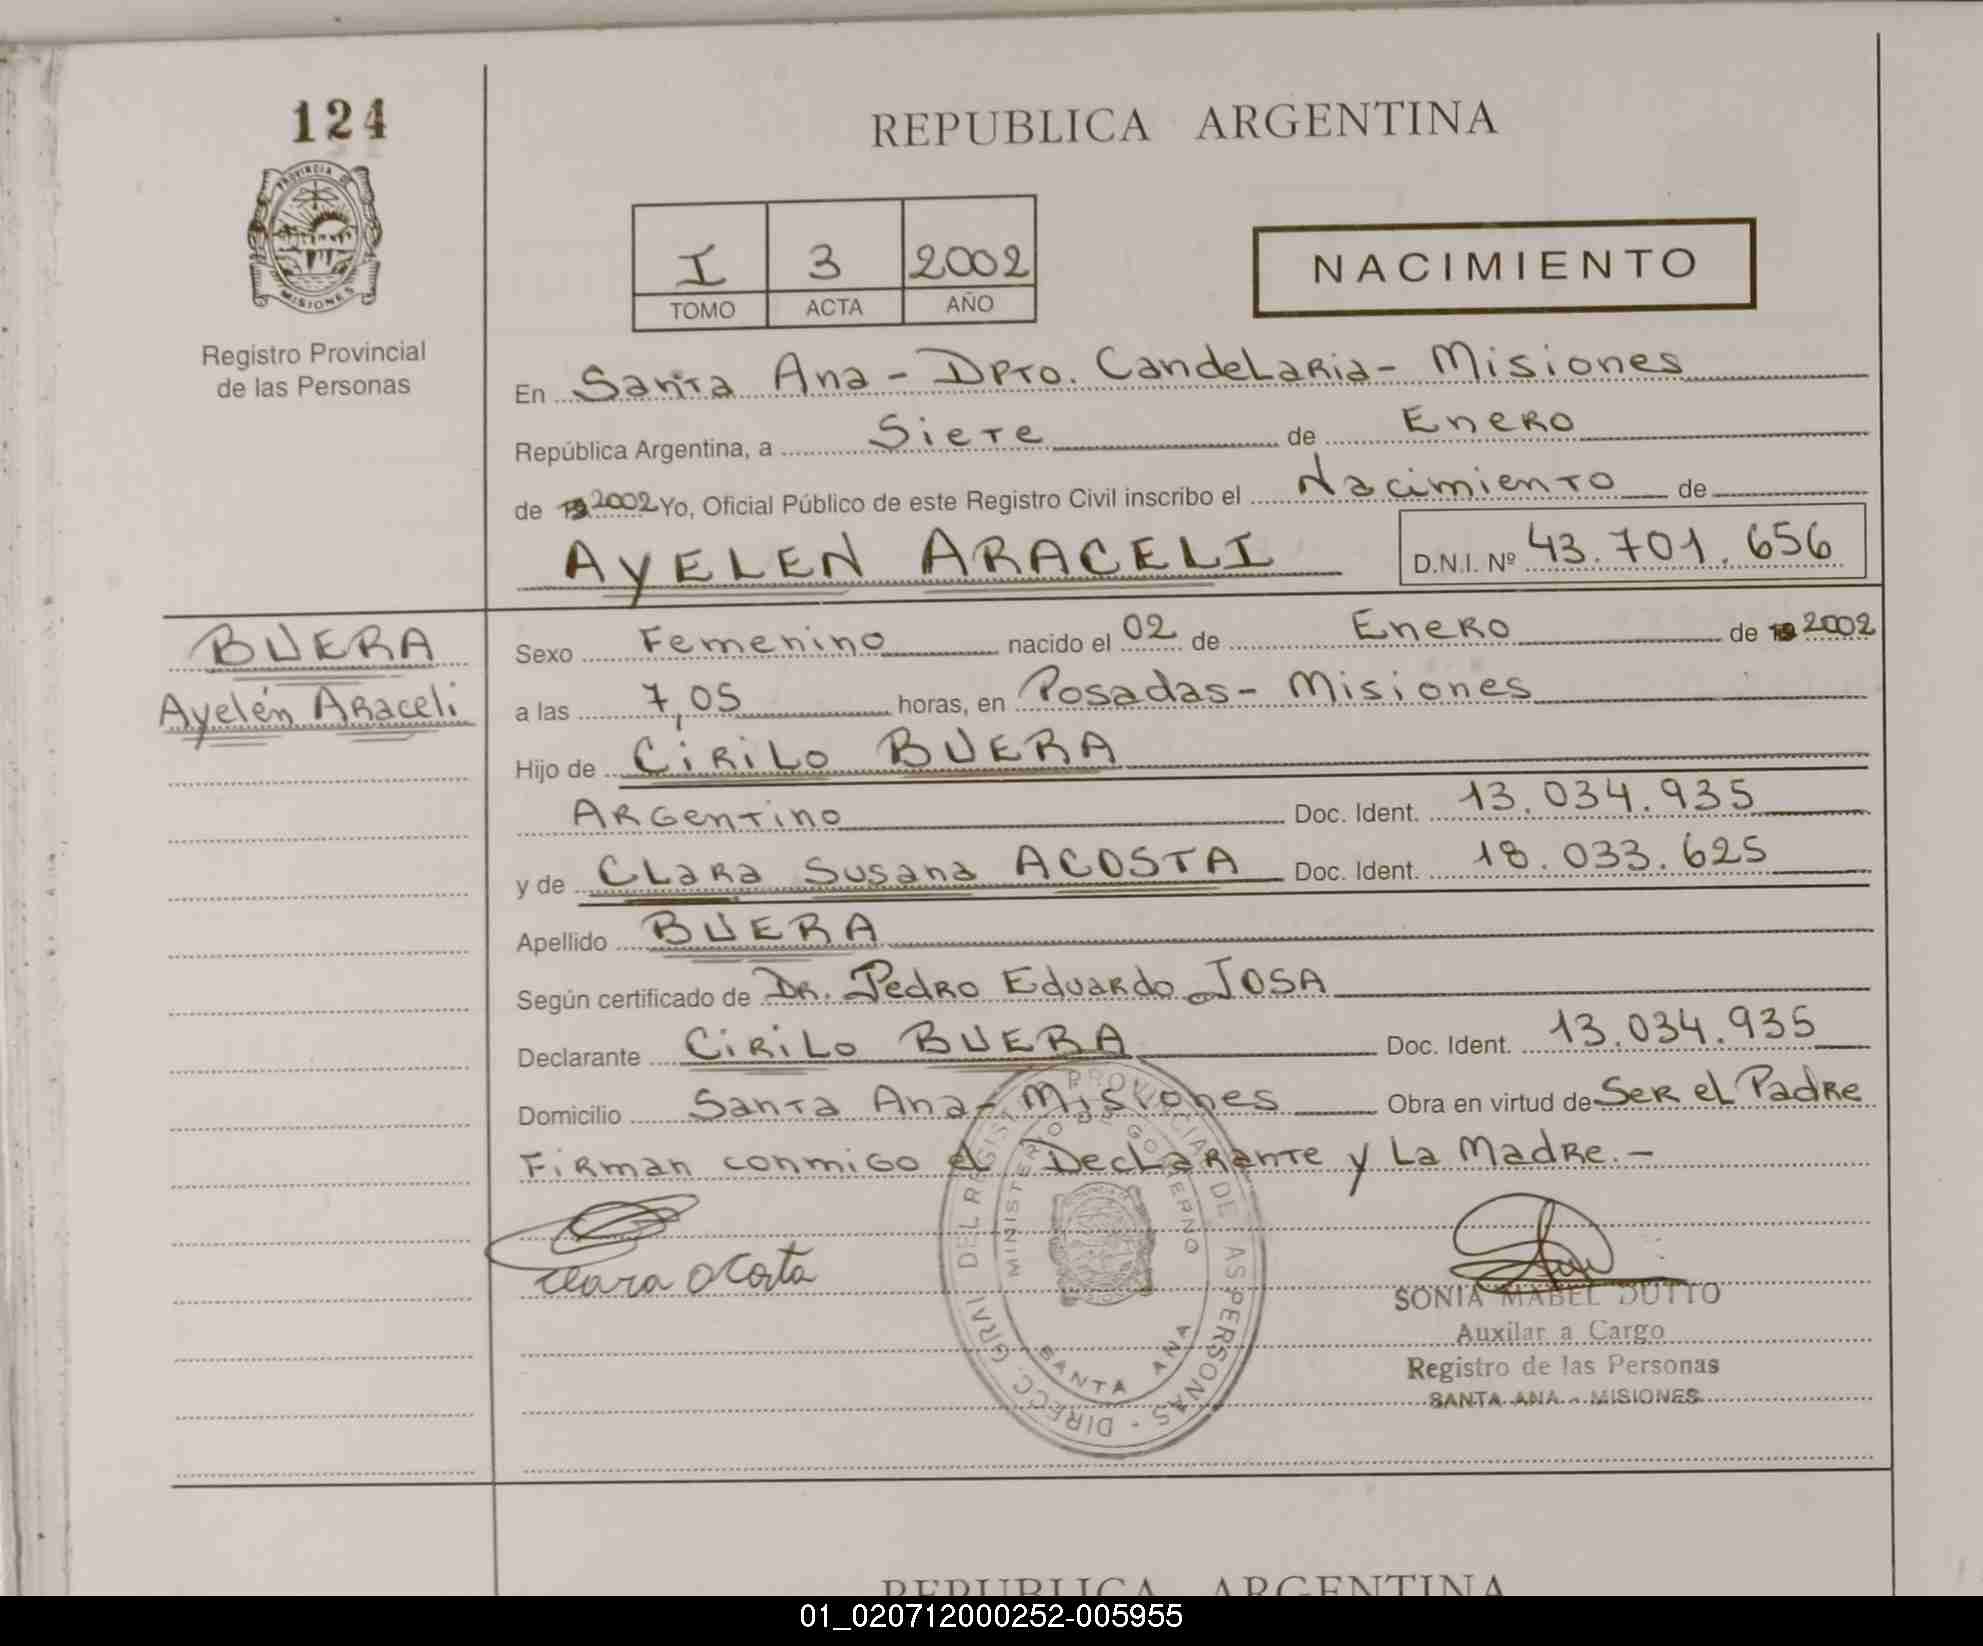 124
REPUBLICA ARGENTINA
PROVINCIA DE
MISIONES
Registro Provincial
de las Personas
I 3 2002
TOMO ACTA AÑO
NACIMIENTO
En Santa Ana - Dpto. Candelaria - Misiones
República Argentina, a Siete de Enero
de 2002 Yo, Oficial Público de este Registro Civil inscribo el Nacimiento de
AYELEN ARACELI D.N.I. Nº 43.701.656
BUERA
Ayelén Araceli
Sexo Femenino nacido el 02 de Enero de 2002
a las 7,05 horas, en Posadas - Misiones
Hijo de Cirilo BUERA
Argentino Doc. Ident. 13.034.935
y de Clara Susana ACOSTA Doc. Ident. 18.033.625
Apellido BUERA
Según certificado de Dr. Pedro Eduardo JOSA
Declarante Cirilo BUERA Doc. Ident. 13.034.935
Domicilio Santa Ana - Misiones Obra en virtud de Ser el Padre
Firman conmigo el Declarante y La Madre. -
Clara Acosta
DIRECC. GRAL. DEL REGIST. PROVINCIAL DE LAS PERSONAS -
MINISTERIO DE GOBIERNO
SANTA ANA
SONIA MABEL DUTTO
Auxilar a Cargo
Registro de las Personas
SANTA ANA - MISIONES
REPUBLICA ARGENTINA
01_020712000252-005955